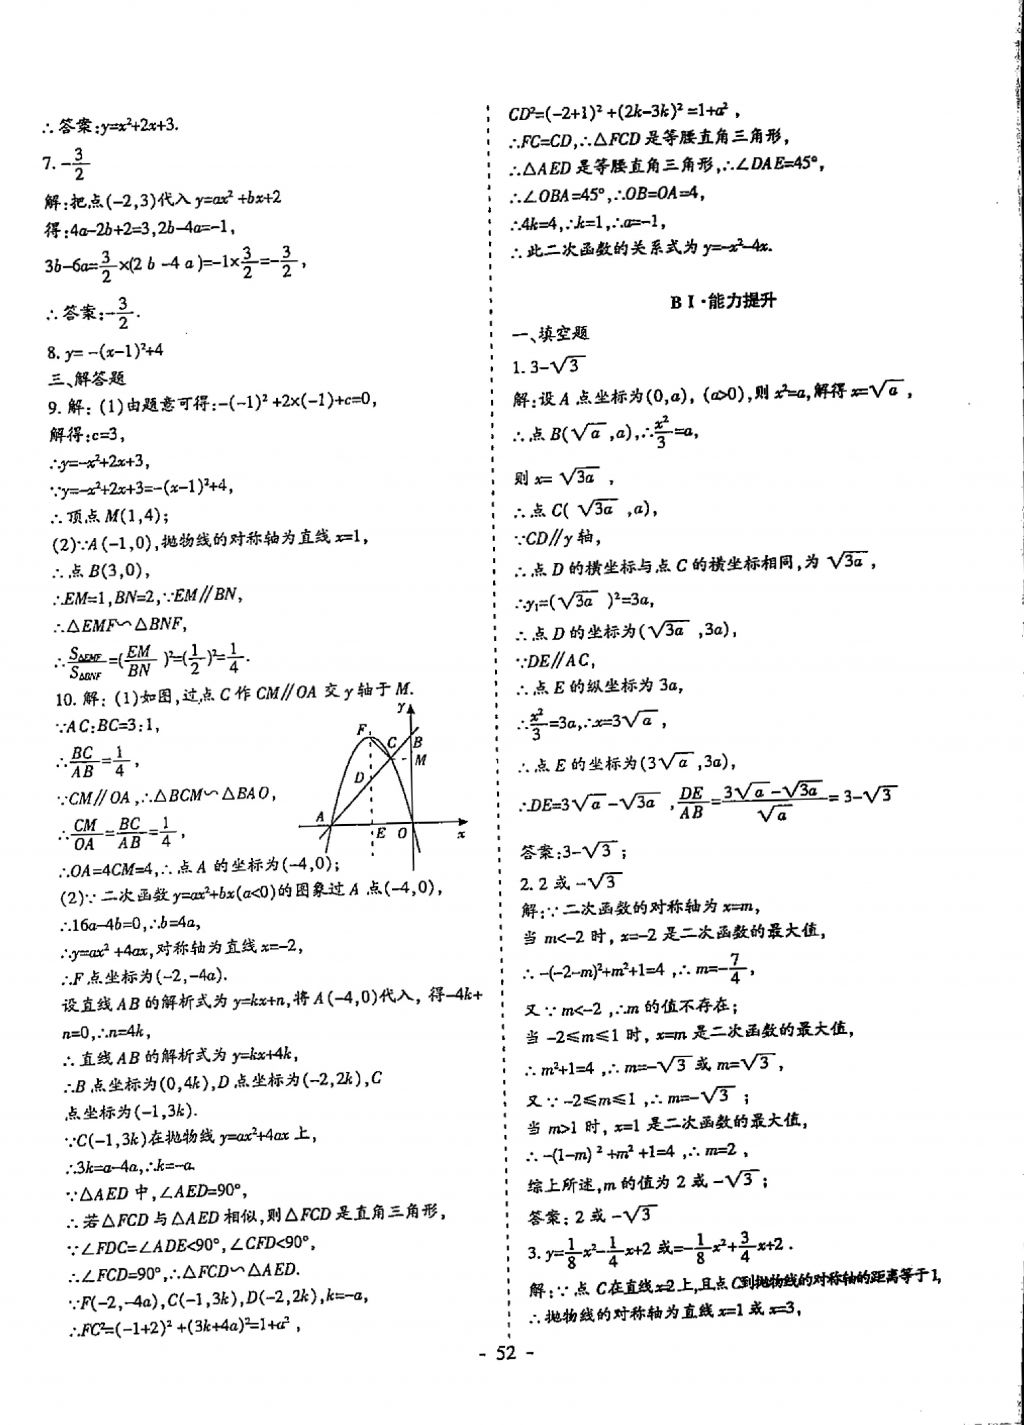 ∴答案:y=x²+2x+3.
7. -3/2
解:把点(-2,3)代入 y=ax²+bx+2
得:4a-2b+2=3,2b-4a=-1,
3b-6a=3/2×(2b-4a)=-1×3/2=-3/2,
∴答案:-3/2.
8. y= -(x-1)²+4
三、解答题
9. 解: (1)由题意可得:-(-1)²+2×(-1)+c=0,
解得:c=3,
∴y=-x²+2x+3,
∵y=-x²+2x+3=-(x-1)²+4,
∴顶点 M(1,4);
(2)∵A(-1,0),抛物线的对称轴为直线 x=1,
∴点 B(3,0),
∴EM=1,BN=2,∵EM∥BN,
∴△EMF∽△BNF,
∴S△EMF/S△BNF=(EM/BN)²=(1/2)²=1/4.
10. 解: (1)如图,过点 C 作 CM∥OA 交 y 轴于 M.
∵AC:BC=3:1,
∴BC/AB=1/4,
∵CM∥OA,∴△BCM∽△BAO,
∴CM/OA=BC/AB=1/4,
Y
F
C
B
M
D
A
E
O
x
∴OA=4CM=4,∴点 A 的坐标为(-4,0);
(2)∵二次函数 y=ax²+bx(a<0)的图象过 A 点(-4,0),
∴16a-4b=0,∴b=4a,
∴y=ax²+4ax,对称轴为直线 x=-2,
∴F 点坐标为(-2,-4a).
设直线 AB 的解析式为 y=kx+n,将 A(-4,0)代入, 得-4k+
n=0,∴n=4k,
∴直线 AB 的解析式为 y=kx+4k,
∴B 点坐标为(0,4k),D 点坐标为(-2,2k),C
点坐标为(-1,3k).
∵C(-1,3k)在抛物线 y=ax²+4ax 上,
∴3k=a-4a,∴k=-a.
∵△AED 中,∠AED=90°,
∴若△FCD 与△AED 相似,则△FCD 是直角三角形,
∵∠FDC=∠ADE<90°,∠CFD<90°,
∴∠FCD=90°,∴△FCD∽△AED.
∵F(-2,-4a),C(-1,3k),D(-2,2k),k=-a,
∴FC²=(-1+2)²+(3k+4a)²=1+a²,
CD²=(-2+1)²+(2k-3k)²=1+a²,
∴FC=CD,∴△FCD 是等腰直角三角形,
∴△AED 是等腰直角三角形,∴∠DAE=45°,
∴∠OBA=45°,∴OB=OA=4,
∴4k=4,∴k=1,∴a=-1,
∴此二次函数的关系式为 y=-x²-4x.
B Ⅰ·能力提升
一、填空题
1. 3-√3
解:设 A 点坐标为(0,a), (a>0),则 x²=a,解得 x=√a,
∴点 B(√a,a),∴x²/3=a,
则 x=√3a,
∴点 C(√3a,a),
∵CD∥y 轴,
∴点 D 的横坐标与点 C 的横坐标相同,为 √3a,
∴y₁=(√3a)²=3a,
∴点 D 的坐标为(√3a,3a),
∵DE∥AC,
∴点 E 的纵坐标为 3a,
∴x²/3=3a,∴x=3√a,
∴点 E 的坐标为(3√a,3a),
∴DE=3√a-√3a,DE/AB=(3√a-√3a)/√a=3-√3
答案:3-√3;
2. 2 或 -√3
解:∵二次函数的对称轴为 x=m,
当 m<-2 时, x=-2 是二次函数的最大值,
∴-(-2-m)²+m²+1=4,∴m=-7/4,
又∵m<-2,∴m 的值不存在;
当 -2≤m≤1 时, x=m 是二次函数的最大值,
∴m²+1=4,∴m=-√3 或 m=√3,
又∵-2≤m≤1,∴m=-√3;
当 m>1 时, x=1 是二次函数的最大值,
∴-(1-m)²+m²+1=4,∴m=2,
综上所述,m 的值为 2 或 -√3;
答案: 2 或 -√3
3. y=1/8x²-1/4x+2 或=-1/8x²+3/4x+2.
解:∵点 C在直线x=2上,且点C到抛物线的对称轴的距离等于1,
∴抛物线的对称轴为直线 x=1 或 x=3,
- 52 -